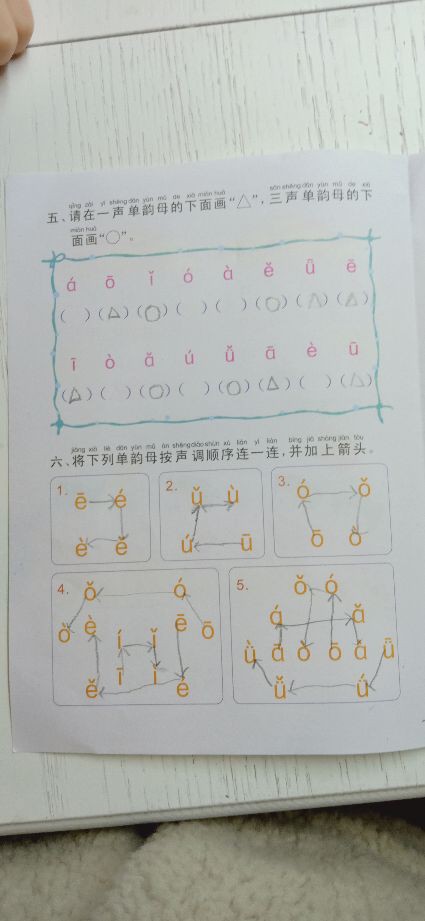 qīng zài yī shēng dān yùn mǔ de xià miàn huà sān shēng dān yùn mǔ de xià
五、请在一声单韵母的下面画“△”，三声单韵母的下
miàn huà
面画“○”。
á ō ǐ ó à ě ǖ ē
( ) (△) (○) ( ) ( ) (○) (△) (△)
ī ò ǎ ú ǚ ā è ū
(△) ( ) (○) ( ) (○) (△) ( ) (△)
jiāng xià liè dān yùn mǔ àn shēng diào shùn xù lián yī lián bìng jiā shàng jiàn tóu
六、将下列单韵母按声调顺序连一连，并加上箭头。
1. ē é
è ě
2. ǔ ù
ú ū
3. ó ǒ
ō ò
4. ǒ ó
ò è í ǐ ē ō
ě ī ì é
5. ǒ ó
á ǎ
ǜ ā ò ō à ǖ
ǚ ǘ